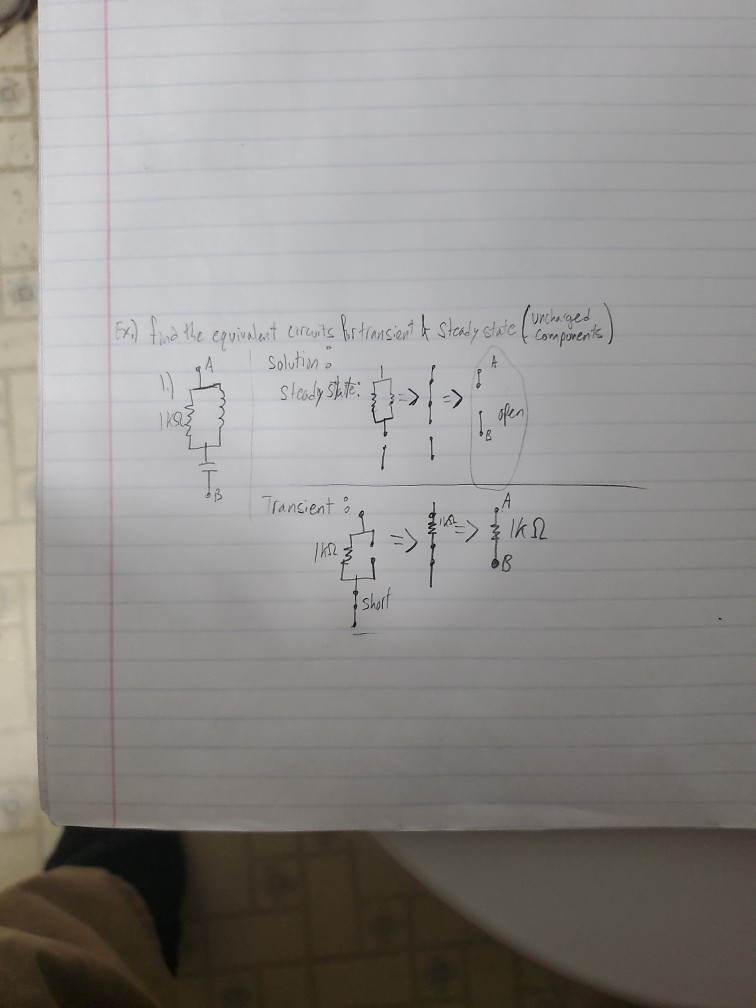 Ex.) find the equivalent circuits for transient & steady state (uncharged components)
1.)
A
1KΩ
B
Solution:
Steady state: => =>
A
open
B
Transient:
1kΩ
short
=>
1kΩ
=>
A
1kΩ
B